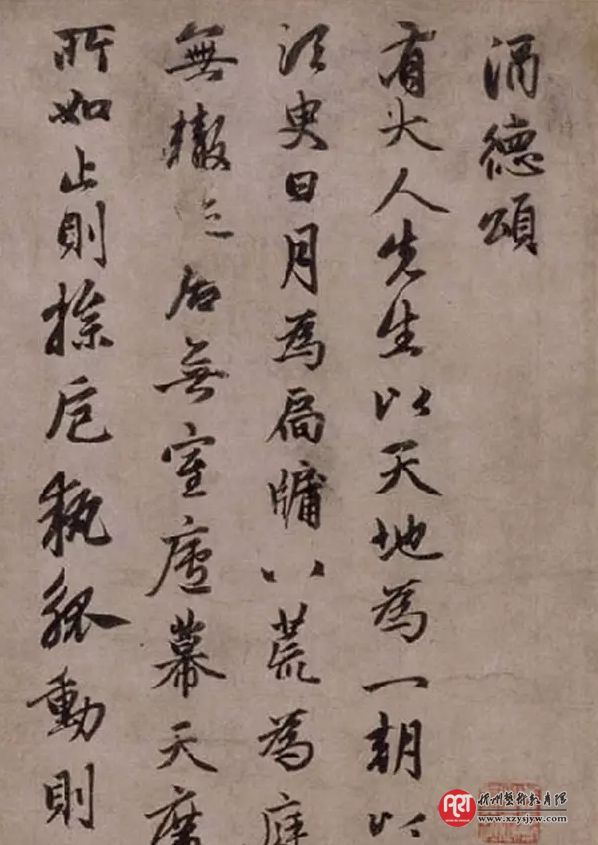 酒德頌
有大人先生以天地為一朝以
須臾日月為扃牖八荒為庭
無轍迹居無室廬幕天席
所如止則操卮執觚動則
ART
www.xzysjyw.com